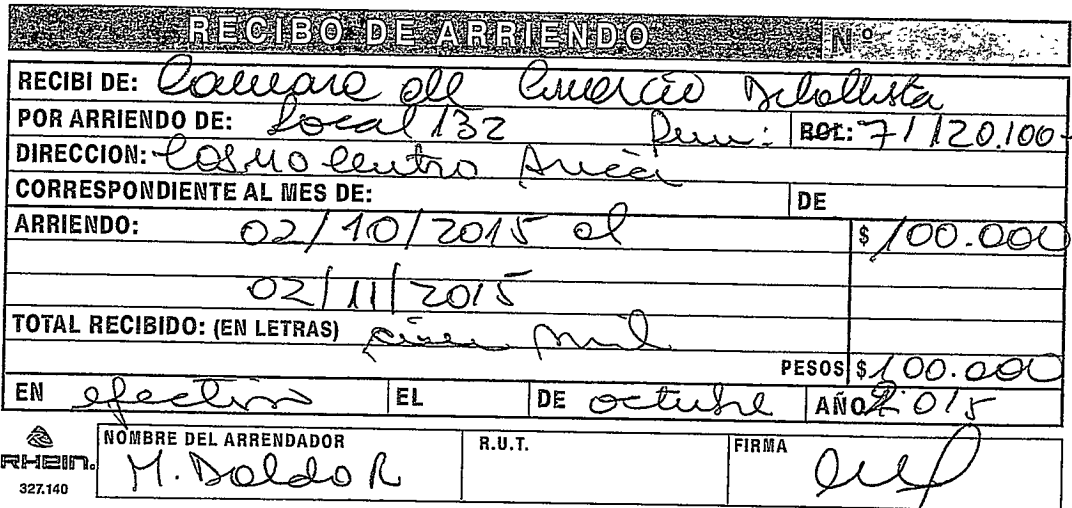 RECIBO DE ARRIENDO Nº
RECIBI DE: Camara del Comercio Detallista
POR ARRIENDO DE: Local 132 Rum: ROL: 7/120.100-
DIRECCION: Cosmo Centro Arica
CORRESPONDIENTE AL MES DE: DE
ARRIENDO: 02/10/2015 al $100.000
02/11/2015
TOTAL RECIBIDO: (EN LETRAS) cien mil
PESOS $100.000
EN efectivo EL DE octubre AÑO 2015
NOMBRE DEL ARRENDADOR R.U.T. FIRMA
RHEIN. M. Doldo R
327.140